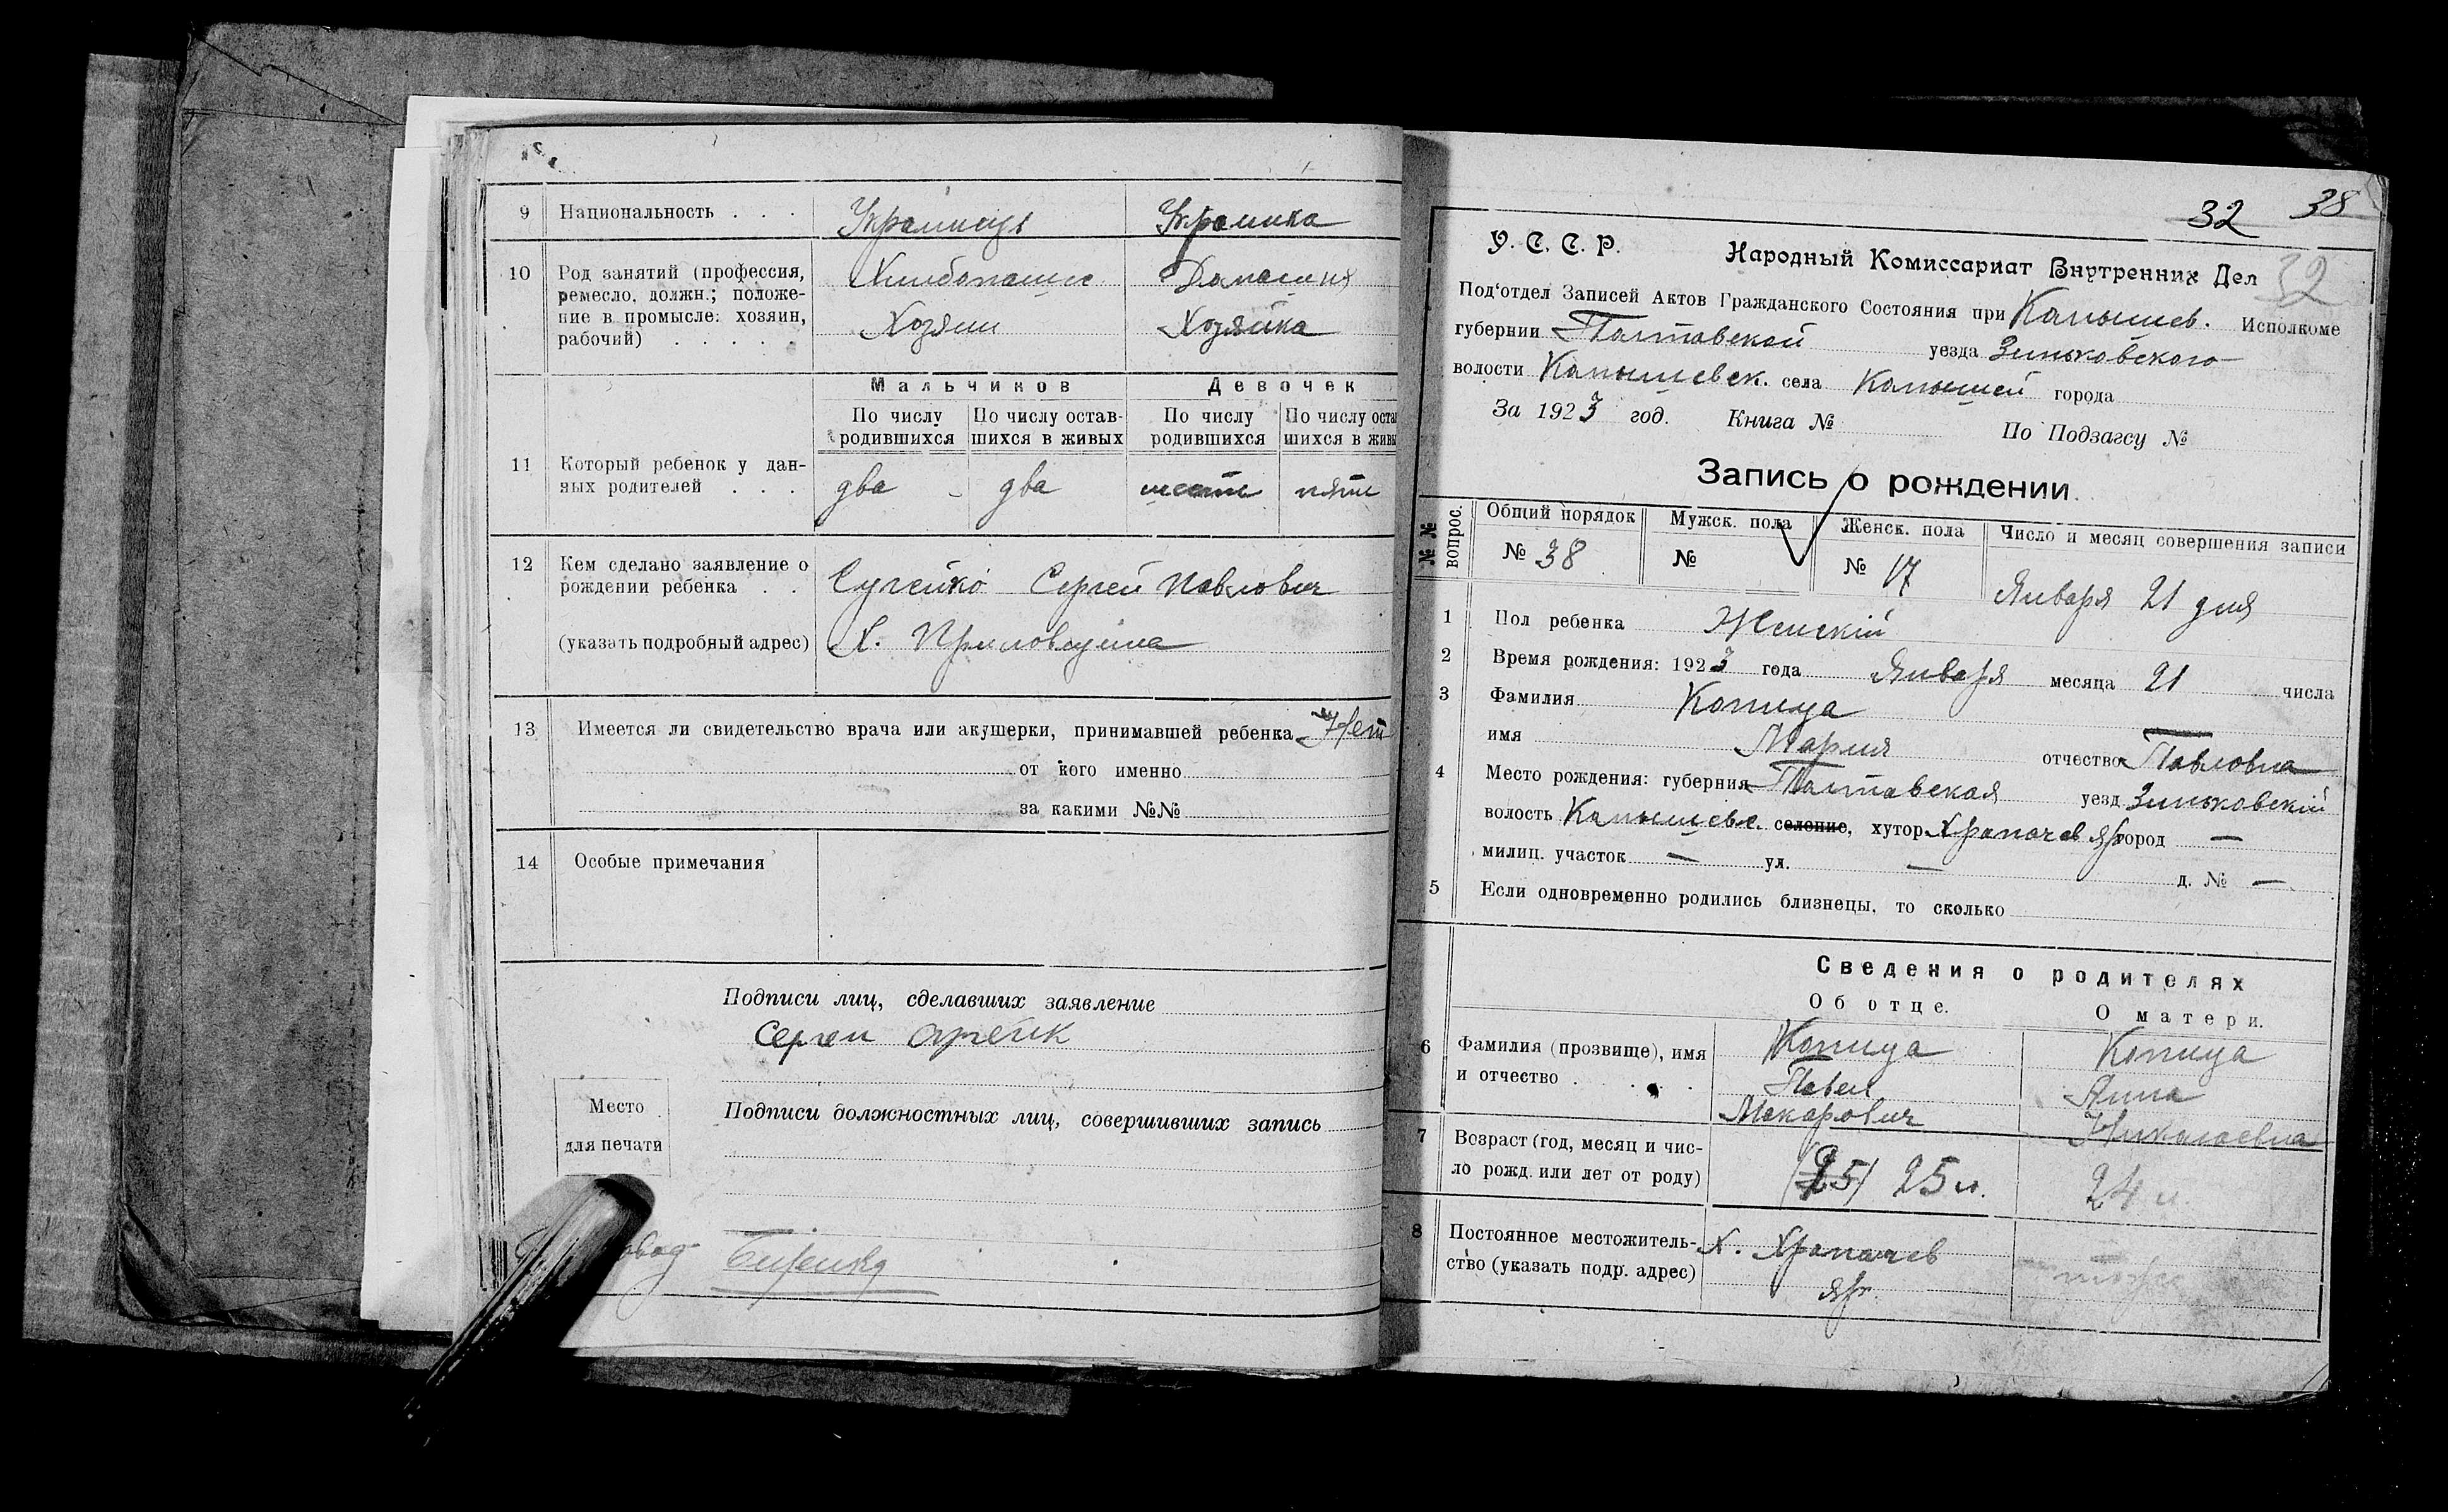 9 Национальность . . . Украинец Украинка
10 Род занятий (профессия, Хлебопашес Домашняя
ремесло, должн.; положе-
ние в промысле: хозяин, Хозяин Хозяйка
рабочий) . . . . .
Мальчиков Девочек
По числу По числу остав- По числу По числу оста
родившихся шихся в живых родившихся шихся в живы
11 Который ребенок у дан-
ных родителей . . . два два шесть пять
12 Кем сделано заявление о
рождении ребенка . . Сугейко Сергей Павлович
(указать подробный адрес) Х.
13 Имеется ли свидетельство врача или акушерки, принимавшей ребенка Нет
от кого именно
за какими №№
14 Особые примечания
Подписи лиц, сделавших заявление
Сергеи
Место
для печати
Подписи должностных лиц, совершивших запись
32 38
У. С. С. Р. Народный Комиссариат Внутренних Дел 32
Под'отдел Записей Актов Гражданского Состояния при Камышев. Исполкоме
губернии Полтавской уезда Зиньковского
волости Камышевск. села Камышей города
За 1923 год. Книга № По Подзагсу №
Запись о рождении
№№ вопрос. Общий порядок Мужск. пола Женск. пола Число и месяц совершения записи
№ 38 № № 17 Января 21 дня
1 Пол ребенка Женскій
2 Время рождения: 1923 года Января месяца 21 числа
3 Фамилия Копица
имя Мария отчество Павловна
4 Место рождения: губерния Полтавская уезд Зиньковскій
волость Камышевс. селение, хутор Храпачев яр город —
милиц. участок — ул. — д. № —
5 Если одновременно родились близнецы, то сколько
Сведения о родителях
Об отце. О матери.
6 Фамилия (прозвище), имя Копица Копица
и отчество . . . . Павел Анна
Макарович Николаевна
7 Возраст (год, месяц и чис-
ло рожд. или лет от роду) (25) 25 л. 24 л.
8 Постоянное местожитель- Х. Храпачев
ство (указать подр. адрес) яр. тоже